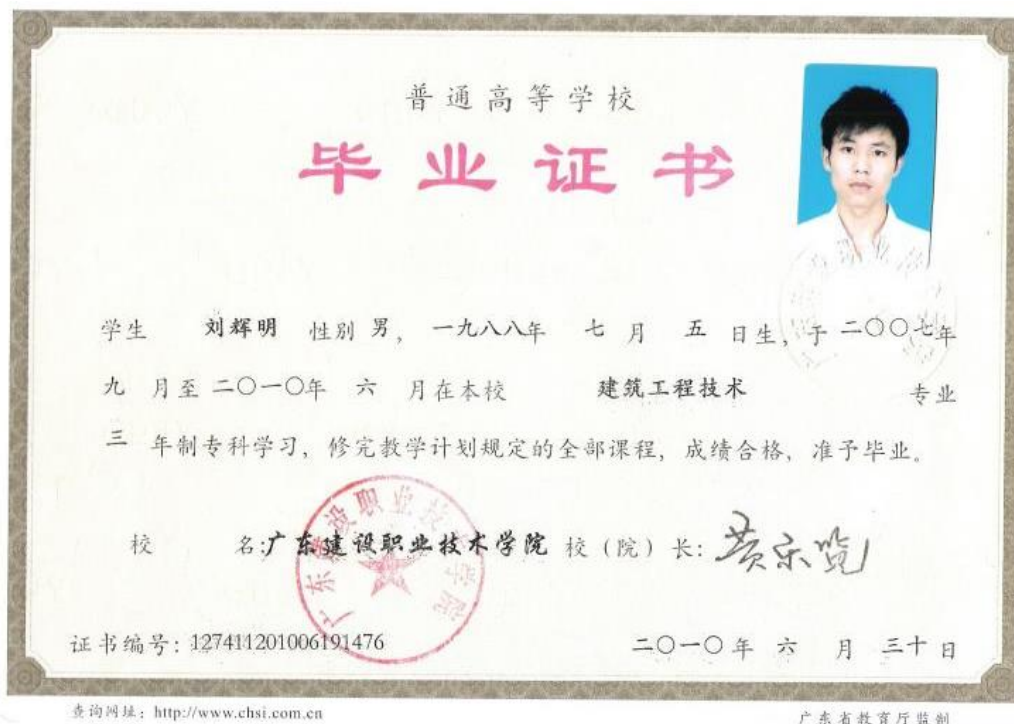 普通高等学校
毕业证书
学生 刘辉明 性别 男, 一九八八年 七 月 五 日生, 于 二〇〇七年
九 月至 二〇一〇年 六 月在本校 建筑工程技术 专业
三 年制专科学习, 修完教学计划规定的全部课程, 成绩合格, 准予毕业。
广东建设职业技术学院
校 名:广东建设职业技术学院 校(院)长:
证书编号: 127411201006191476
二〇一〇年 六 月 三十 日
查询网址: http://www.chsi.com.cn
广东省教育厅监制